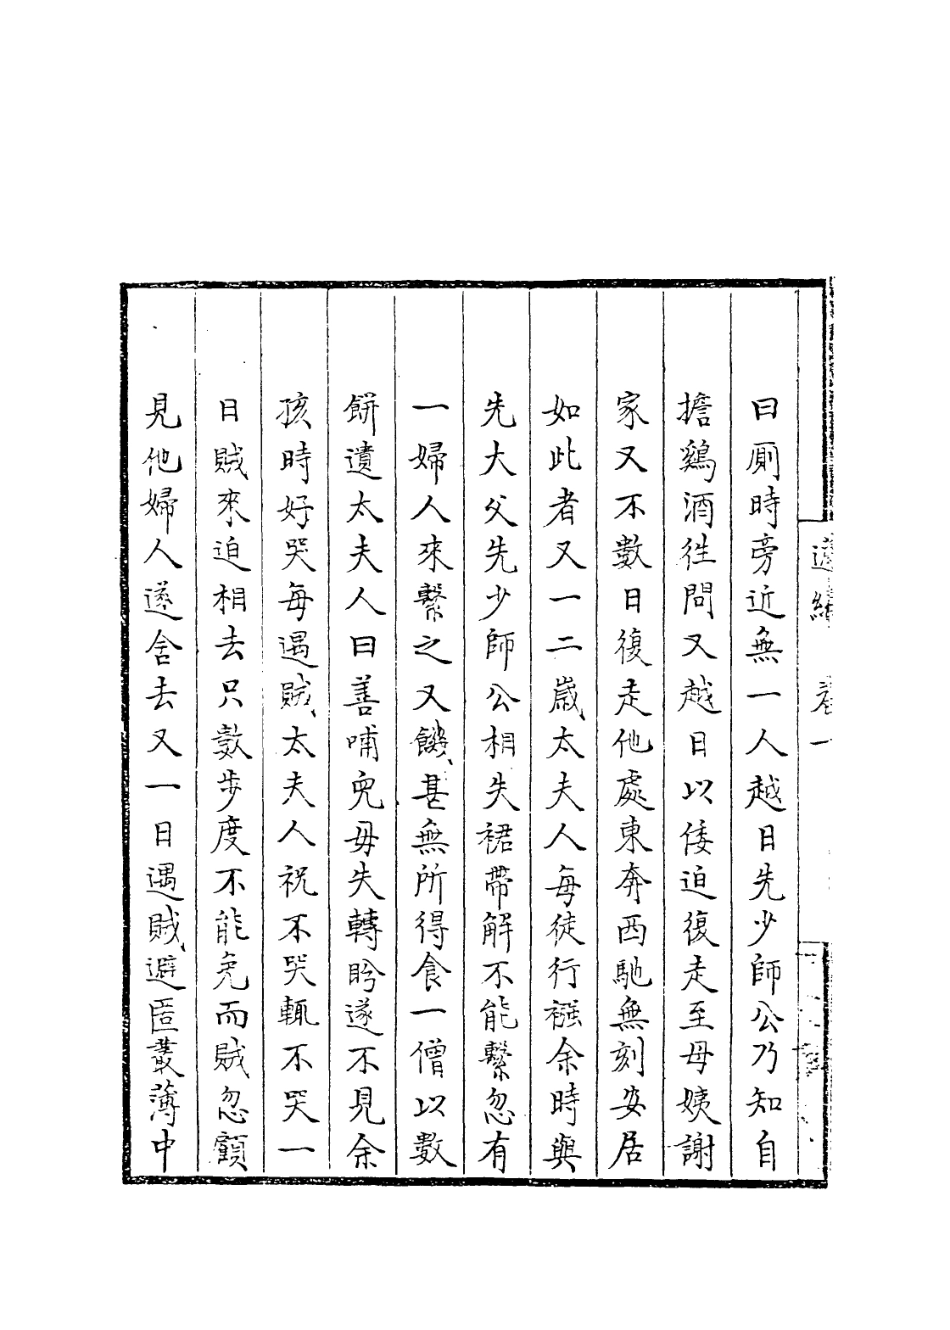 曰厠時旁近無一人越日先少師公乃知自
擔鷄酒徃問又越日以倭迫復走至母姨謝
家又不數日復走他處東奔西馳無刻安居
如此者又一二歲太夫人每徒行襁余時與
先大父先少師公相失裙帶解不能繫忽有
一婦人來繫之又饑甚無所得食一僧以數
餅遺太夫人曰善哺兒毋失轉盻遂不見余
孩時好哭每遇賊太夫人祝不哭輒不哭一
日賊來迫相去只數步度不能免而賊忽顧
見他婦人遂舍去又一日遇賊避匿叢薄中